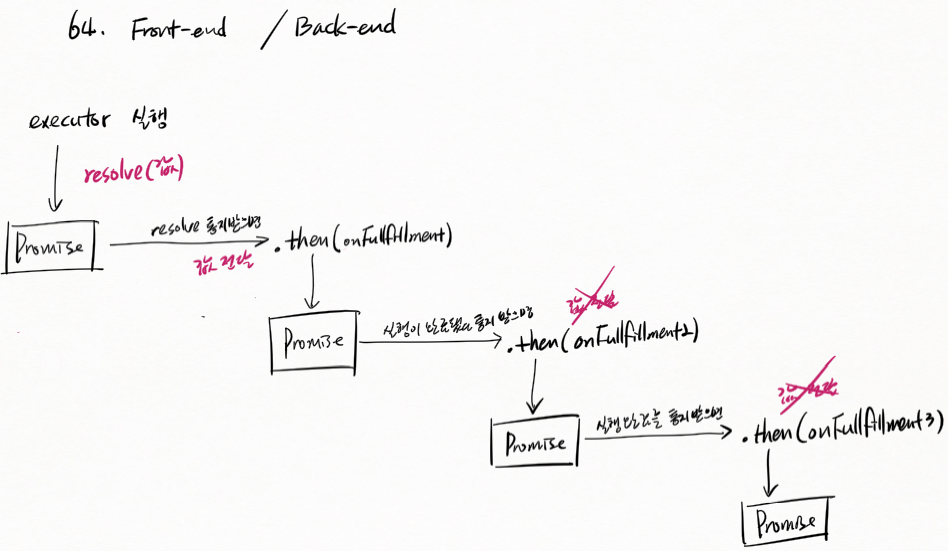 64. Front-end / Back-end
executor 실행
resolve(값)
Promise
resolve 통지받으면
값 전달
.then(onFullfillment)
Promise
실행이 완료됐다 통지 받으면
값 전달
.then(onFullfillment2)
Promise
실행 완료를 통지받으면
값 전달
.then(onFullfillment3)
Promise